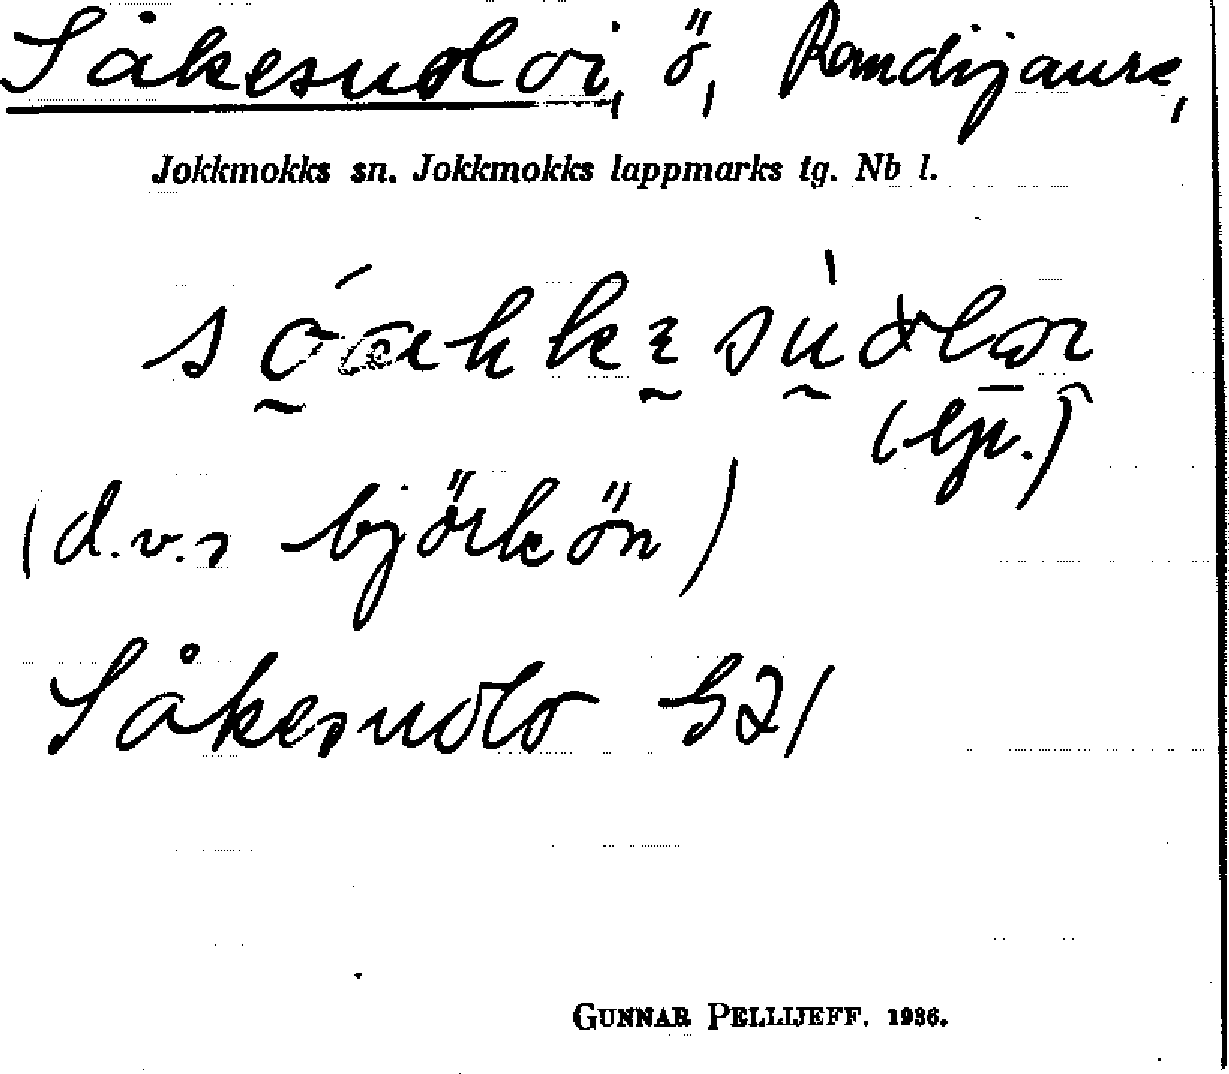 Såkesuoloi, ö, Randijaure,
Jokkmokks sn. Jokkmokks lappmarks tg. Nb l.
(lpr.)
(d.v.s björkön)
Såkesuolo
GUNNAR PELLIJEFF. 1936.